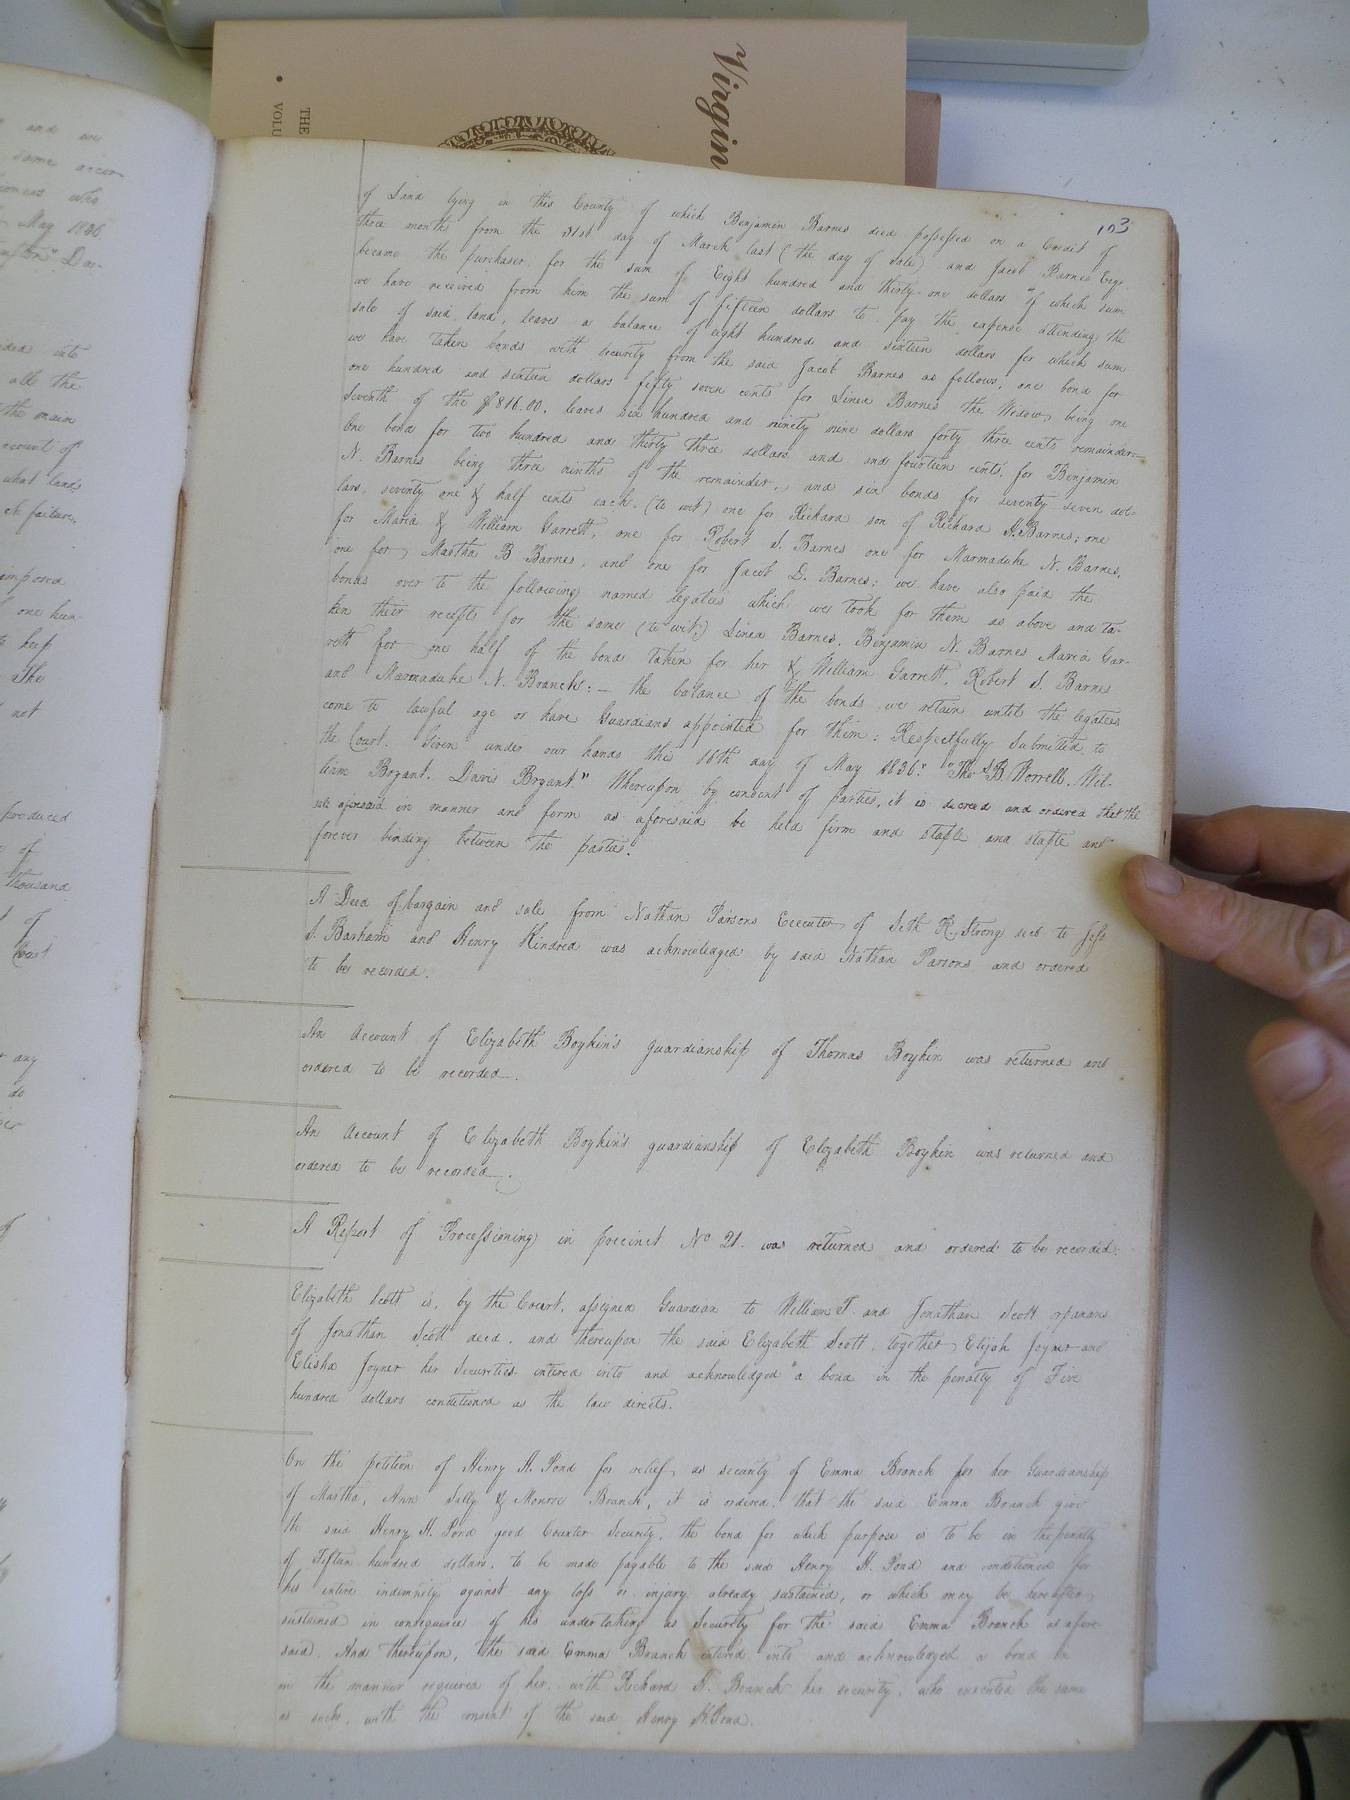 Virgin
THE
VOLU
and we
same accor-
ioners who
May 1836.
103
of Land lying in this County of which Benjamin Barnes died possessed on a Credit of
three months from the 31st day of March last (the day of sale) and Jacob Barnes
became the purchaser for the sum of Eight hundred and thirty-one dollars of which sum
we have received from him the sum of fifteen dollars to pay the expense attending the
sale of said land, leaves a balance of eight hundred and sixteen dollars for which sum
we have taken bonds with security from the said Jacob Barnes as follows, one bond for
one hundred and sixteen dollars fifty seven cents for Sinea Barnes the Widow, being one
Seventh of the $816.00. leaves six hundred and ninety nine dollars forty three cents remainder:—
One bond for two hundred and thirty three dollars and and fourteen cents, for Benjamin
N. Barnes being three ninths of the remainder, and six bonds for seventy seven dol-
lars, seventy one & half cents each. (to wit) one for Richard son of Richard H. Barnes; one
for Maria & William Garrett, one for Robert S. Barnes one for Marmaduke N. Barnes,
one for Martha B Barnes, and one for Jacob D. Barnes; we have also paid the
bonds over to the following named legatees which we took for them as above and ta-
ken their receipts for the same (to wit;) Sinea Barnes, Benjamin N. Barnes Maria Gar-
rett for one half of the bond taken for her & William Garrett, Robert S. Barnes
and Marmaduke N. Branch: – the balance of the bonds we retain until the legatees
come to lawful age or have Guardians appointed for them: Respectfully Submitted to
the Court. Given under our hands this 16th day of May 1836". "Thos. B. Worrell, Wil-
liam Bryant, Davis Bryant" Whereupon by consent of parties, it is decreed and ordered that the
sale aforesaid in manner and form as aforesaid be held firm and stable and stable and
forever binding between the parties.
A Deed of bargain and sale from Nathan Parsons Executor of Seth K. Strong decd to
S. Barham and Henry Kindred was acknowledged by said Nathan Parsons and ordered
to be recorded.
An Account of Elizabeth Boykin's guardianship of Thomas Boykin was returned and
ordered to be recorded.
An Account of Elizabeth Boykin's guardianship of Elizabeth Boykin was returned and
ordered to be recorded.
A Report of Processioning in precinct No 21. was returned and ordered to be recorded.
Elizabeth Scott is, by the Court, assigned Guardian to William T. and Jonathan Scott orphans
of Jonathan Scott decd. and thereupon the said Elizabeth Scott, together Elijah Joyner and
Elisha Joyner her Securities entered into and acknowledged a bond in the penalty of Five
hundred dollars conditioned as the law directs.
On the petition of Henry H. Pond for relief as security of Emma Branch for her Guardianship
of Martha, Ann Sally & Monroe Branch, it is ordered, that the said Emma Branch give
the said Henry H. Pond good Counter Security, the bond for which purpose is to be in the penalty
of Fifteen hundred dollars, to be made payable to the said Henry H. Pond and conditioned for
his entire indemnity against any loss or injury already sustained, or which may be hereafter
sustained in consequence of his undertaking as Security for the said Emma Branch as afore
said. And thereupon, the said Emma Branch entered into and acknowledged a bond in
in the manner required of her, with Richard H. Branch her security, who executed the same
as such, with the consent of the said Henry H Pond.